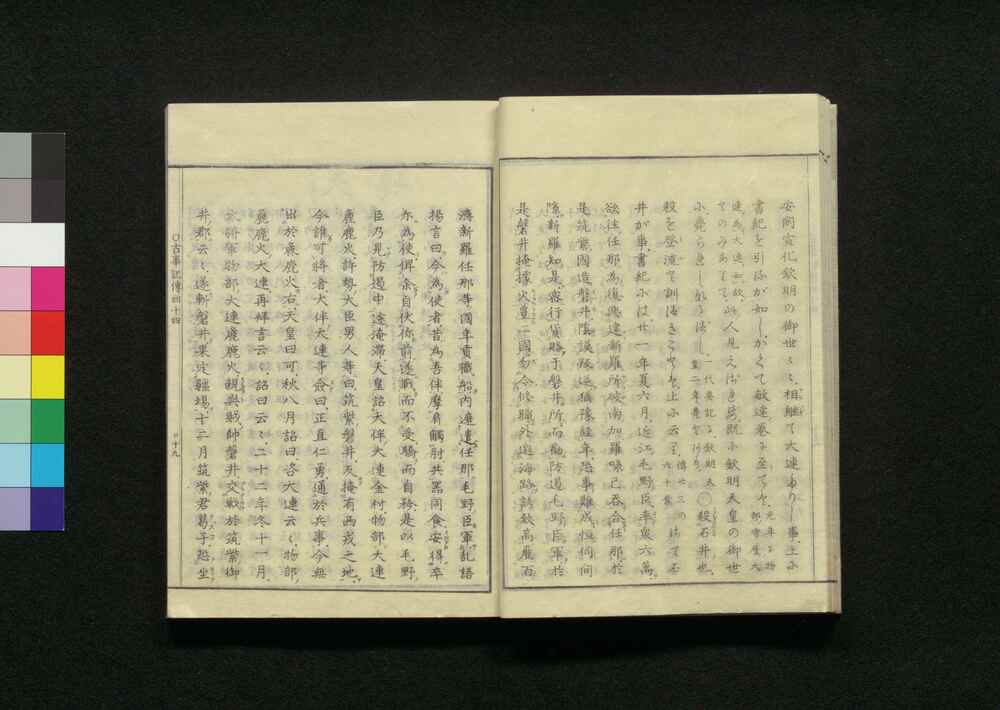 安閑宣化欽明の御世〻、相継て大連ありし事、上み
書紀を引るが如し、かくて敏達巻に至てに、元年に物部守屋大連為大連
如故、
てのみあ 此人見え 既に欽明天皇の御世
に、 一代要記に、欽明天 ○殺石井也、
殺を登流て訓 云 傳廿三の 六十葉
井が事、書紀には、廿一年夏六月、近江毛野臣、率衆六萬、
欲往任那為復興建新羅所破南加羅喙己呑、合任那、於
是筑紫國造磐井陰謨叛逆、猶豫経年恐事難成、恒伺間
隙、新羅知是、密行貨賂于磐井所、而勧防遏毛野臣軍、於
是磐井掩據火豊二國、勿令修職、外邀海路、誘致高麗百
濟新羅任那等國年貢職船、内遮遣任那毛野臣軍、乱語
揚言曰、今為使者、昔為吾伴、摩肩觸肘、共器同食、安得卒
尓為使、俾余自伏你前、遂戰而不受、驕而自矜、是以毛野
臣乃見防遏、中途掩滞、天皇詔大伴大連金村物部大連
麁鹿火許勢大臣男人等曰、筑紫磐井反掩有西戎之地、
今誰可将者、大伴大連等僉曰、正直仁勇通於兵事、今無
出於麁鹿火右、天皇曰可、秋八月詔曰、咨大連云〻物部
麁鹿火大連、再拜言云〻、詔曰云〻、二十二年冬十一月、
大將軍物部大連麁鹿火、親與賊帥磐井交戰於筑紫御
井郡、云〻、遂斬磐井、果定疆場、十二月、筑紫君葛子恐坐
○古事記傳四十四
○十九